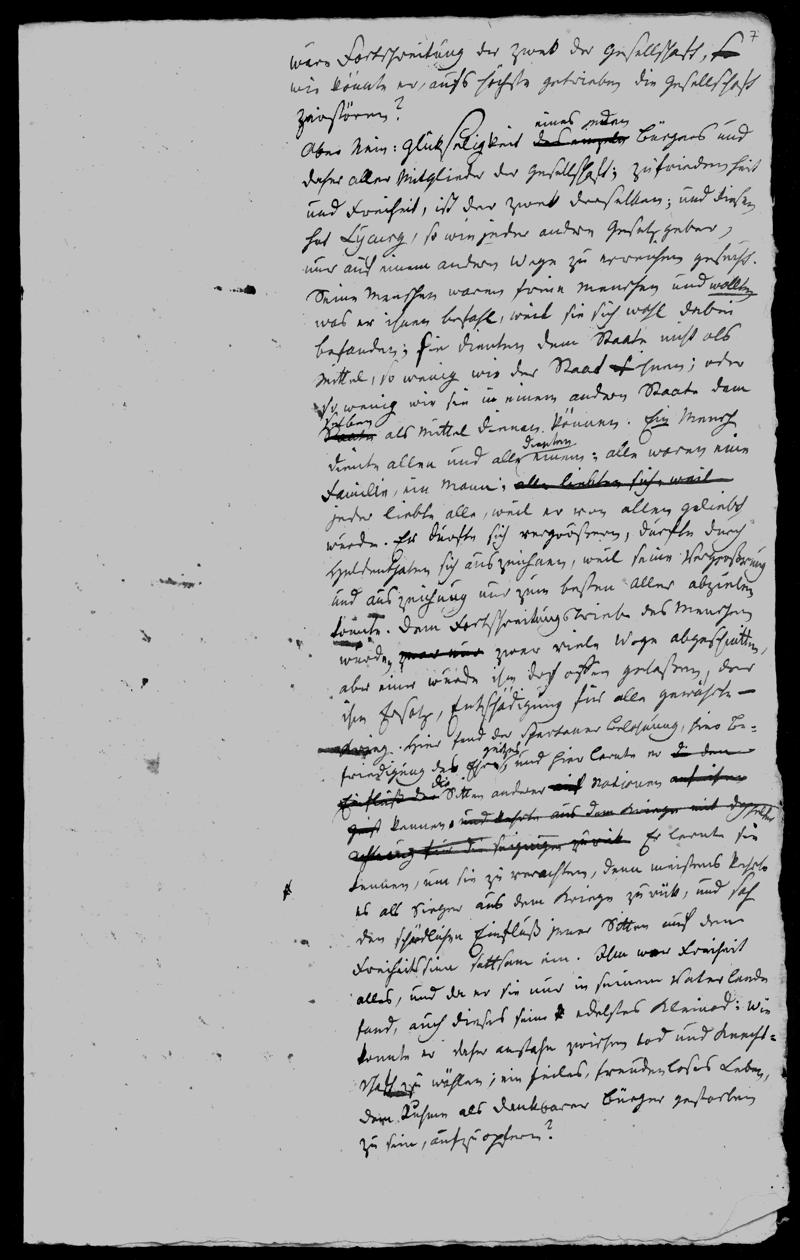 7
wäre Fortschreitung der Zwek der Gesellschaft,
wie könnte er, aufs höchste getrieben die Gesellschaft
zerstören?
Aber Nein: Glükseligkeit eines jeden Bürgers und
daher aller Mitglieder der Gesellschaft; Zufriedenheit
und Freiheit, ist der Zwek derselben; und diesen
hat Lycurg, so wie jeder andere Gesetzgeber,
nur auf einem andern Wege zu erreichen gesucht.
Seine Menschen waren freie Menschen und wollten
was er ihnen befahl, weil sie sich wohl dabei
befanden; sie dienten dem Staate nicht als
Mittel, so wenig wie der Staat ihnen; oder
so wenig wie sie in einem andern Staate dem
selben als Mittel dienen können. Ein Mensch
diente allen und alle dienten einem; alle waren eine
Familie, ein Mann; alle liebten sich, weil
jeder liebte alle, weil er von allen geliebt
wurde. Er durfte sich vergrößern, durfte durch
Heldenthaten sich auszeichnen, weil seine Vergrößrung
und auszeichnung nur zum besten aller abzielen
konnte. Dem Fortschreitungstriebe des Menschen
wurden zwar viele Wege abgeschnitten,
aber einer wurde ihm doch offen gelaßen, der
ihm Ersatz, Entschädigung für alle gewährte —
Krieg. Hier fand der Spartaner Belohnung, hier Be=
friedigung des Ehrgeitzes, und hier lernte er
die Sitten anderer Nationen
kennen. und kehrte aus dem Kriege mit doppelter
achtung für die seinigen zurük. Er lernte sie
kennen, um sie zu verachten, denn meistens kehrte
er als Sieger aus dem Kriege zurük, und sah
den schädlichen Einfluß jener Sitten auf den
Freiheitssinn sattsam ein. Ihm war Freiheit
alles, und da er sie nur in seinem Vaterlande
fand, auch dieses sein edelstes Kleinod: wie
konnte er daher anstehn zwischen tod und Knecht=
schaft zu wählen; ein feiles, freudenloses Leben,
dem Ruhme als dankbarer Bürger gestorben
zu sein, aufzuopfern?